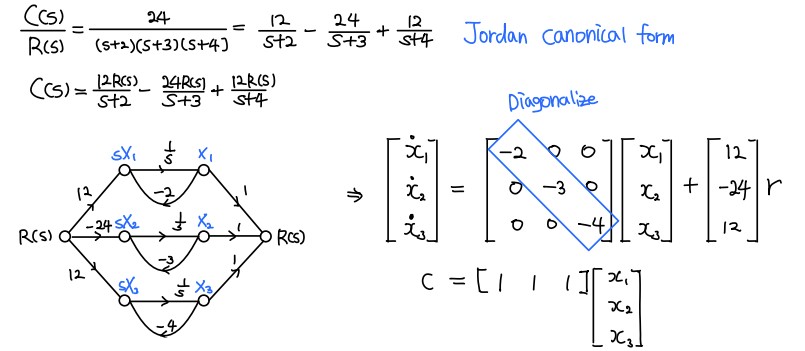 C(s)/R(s) = 24/((s+2)(s+3)(s+4]) = 12/(s+2) - 24/(s+3) + 12/(s+4) Jordan canonical form
C(s) = 12R(s)/(s+2) - 24R(s)/(s+3) + 12R(s)/(s+4)
Diagonalize
sX₁ 1/s X₁
12 -2 1
R(s) -24 sX₂ 1/s X₂ 1 R(s)
-3
12 1
sX₃ 1/s X₃
-4
⇒ [ẋ₁ ẋ₂ ẋ₃] = [-2 0 0; 0 -3 0; 0 0 -4] [x₁ x₂ x₃] + [12 -24 12] r
c = [1 1 1] [x₁ x₂ x₃]